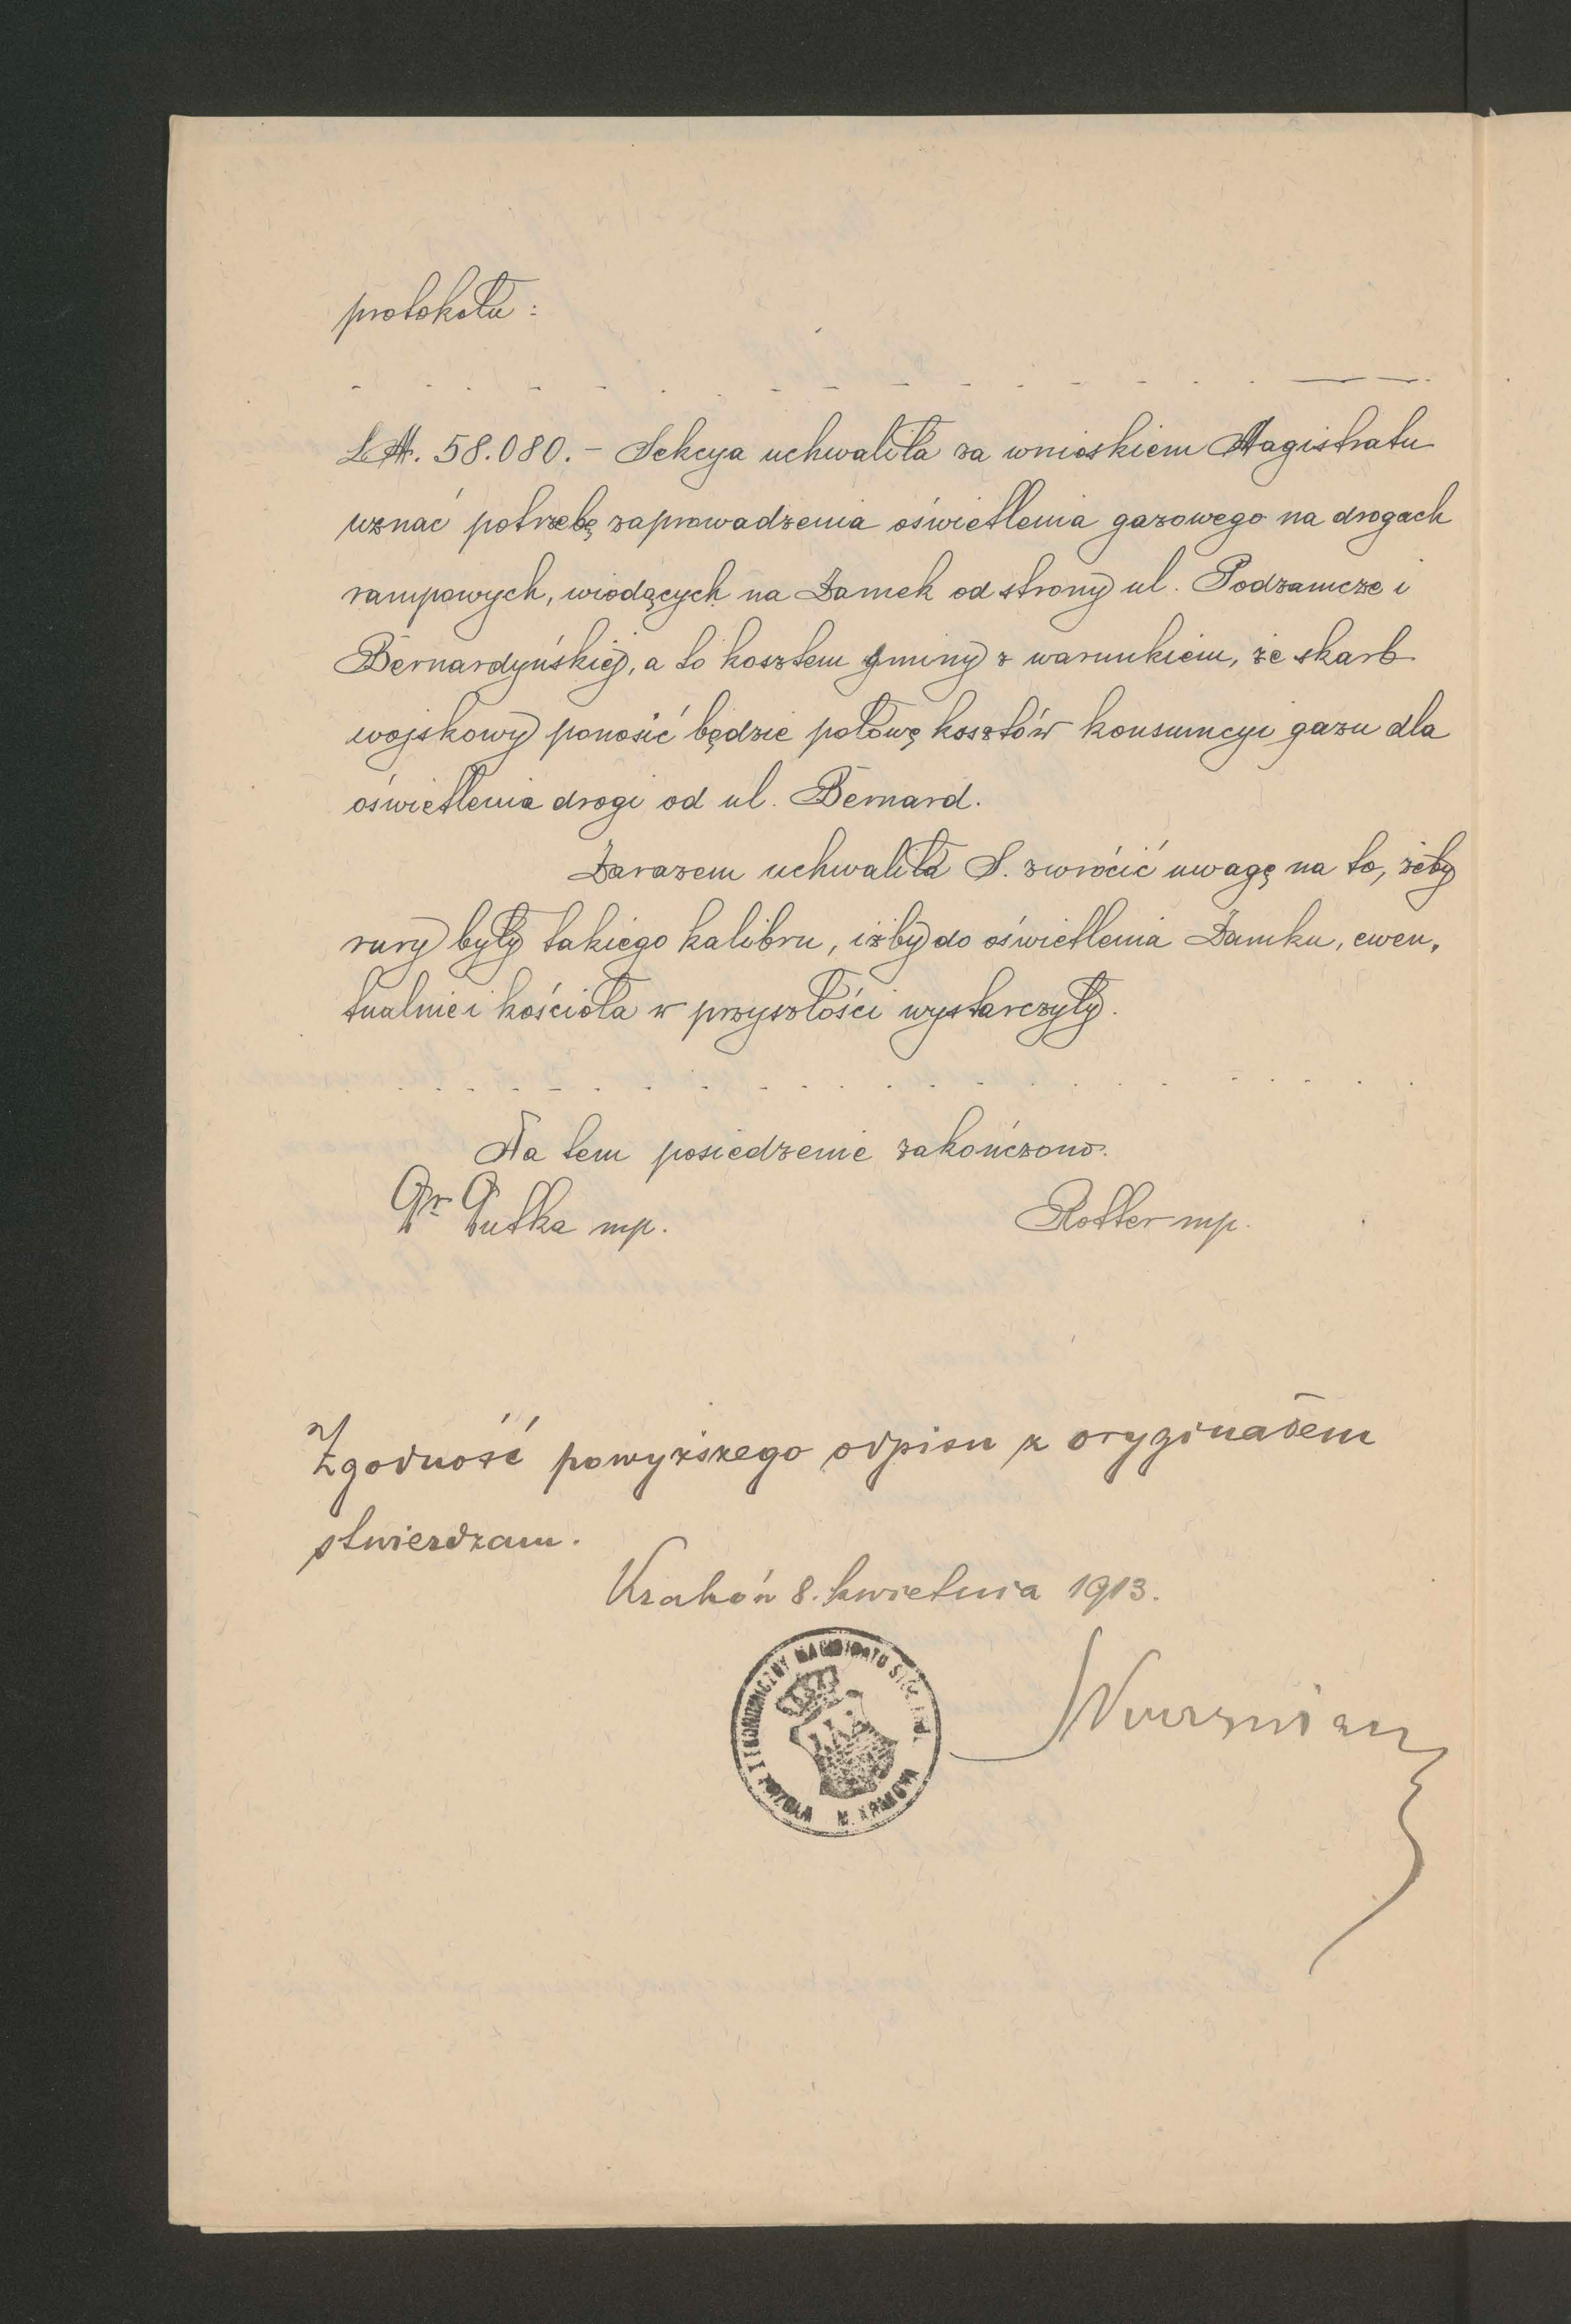 protokołu:
L.M. 58.080. – Sekcya uchwaliła za wnioskiem Magistratu
uznać potrzebę zaprowadzenia oświetlenia gazowego na drogach
rampowych, wiodących na Zamek od strony ul. Podzamcze i
Bernardyńskiej, a to kosztem gminy z warunkiem, że skarb
wojskowy ponosić będzie połowę kosztów konsumcyi gazu dla
oświetlenia drogi od ul. Bernard.
Zarazem uchwaliła S. zwrócić uwagę na to, żeby
rury były takiego kalibru, iżby do oświetlenia Zamku, ewen,
tualnie i kościoła w przyszłości wystarczyły.
Na tem posiedzenie zakończono.
Dr Dutka mp. Rotter mp.
Zgodność powyższego odpisu z oryginałem
stwierdzam.
Kraków 8. kwietnia 1913.
I EKONOMICZNY MAGISTRATU STOŁ. KRÓL. M. KRAKOWA